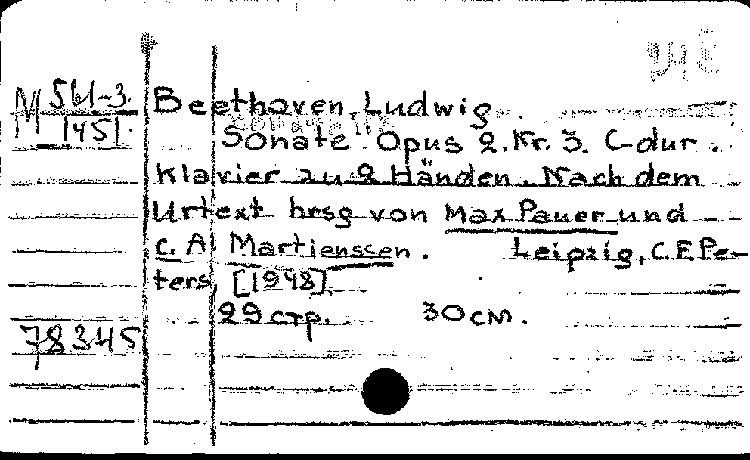 M 561-3
1451.
Beethoven, Ludwig
Sonate. Opus 2. Nr. 3. C-dur.
Klavier zu 2 Händen. Nach dem
Urtext hrsg von Max Pauer und
C. A. Martienssen. Leipzig, C. F. Pe-
ters, [1948].
29 стр. 30 см.
78345